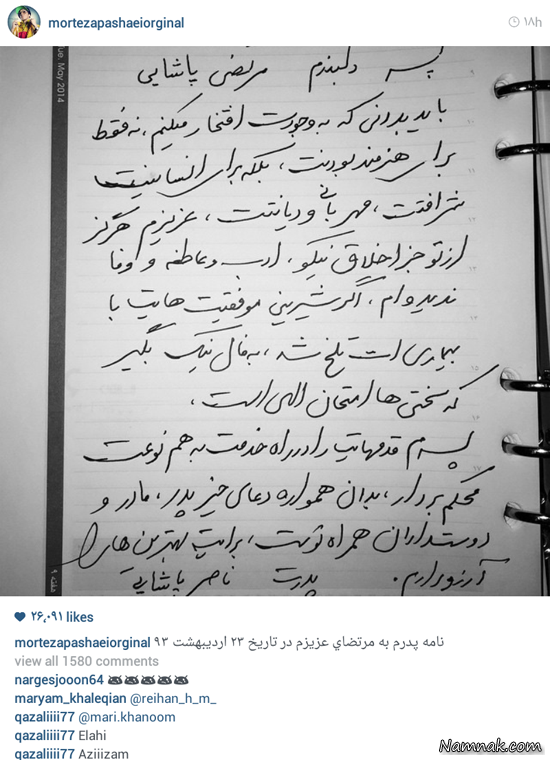 mortezapashaeiorginal
۱۸h
Tue. May 2014
پسر دلبندم مرتضی پاشایی
باید بدونی که به وجودت افتخار میکنیم، نه فقط
برای هنرمند بودنت، بلکه برای انسانیت
شرافتت، مهربانی و دیانتت، عزیزم هرگز
از تو جز اخلاق نیکو، ادب و عاطفه و وفا
ندیده ام، اگر شیرینی موفقیت هایت با
بیماری ات تلخ شد، به فال نیک بگیر
که سختی ها امتحان الهی است،
پسرم قدمهایت را در راه خدمت به هم نوعت
محکم بردار، بدان همواره دعای خیر پدر، مادر و
دوستداران همراه توست، برایت بهترین های را
آرزو دارم. پدرت ناصر پاشایی
هفته ۹
۲۶,۰۹۱ likes
mortezapashaeiorginal نامه پدرم به مرتضاي عزيزم در تاريخ ۲۳ ارديبهشت ۹۳
view all 1580 comments
nargesjooon64
maryam_khaleqian @reihan_h_m_
qazaliiii77 @mari.khanoom
qazaliiii77 Elahi
qazaliiii77 Aziiizam
Namnak.com